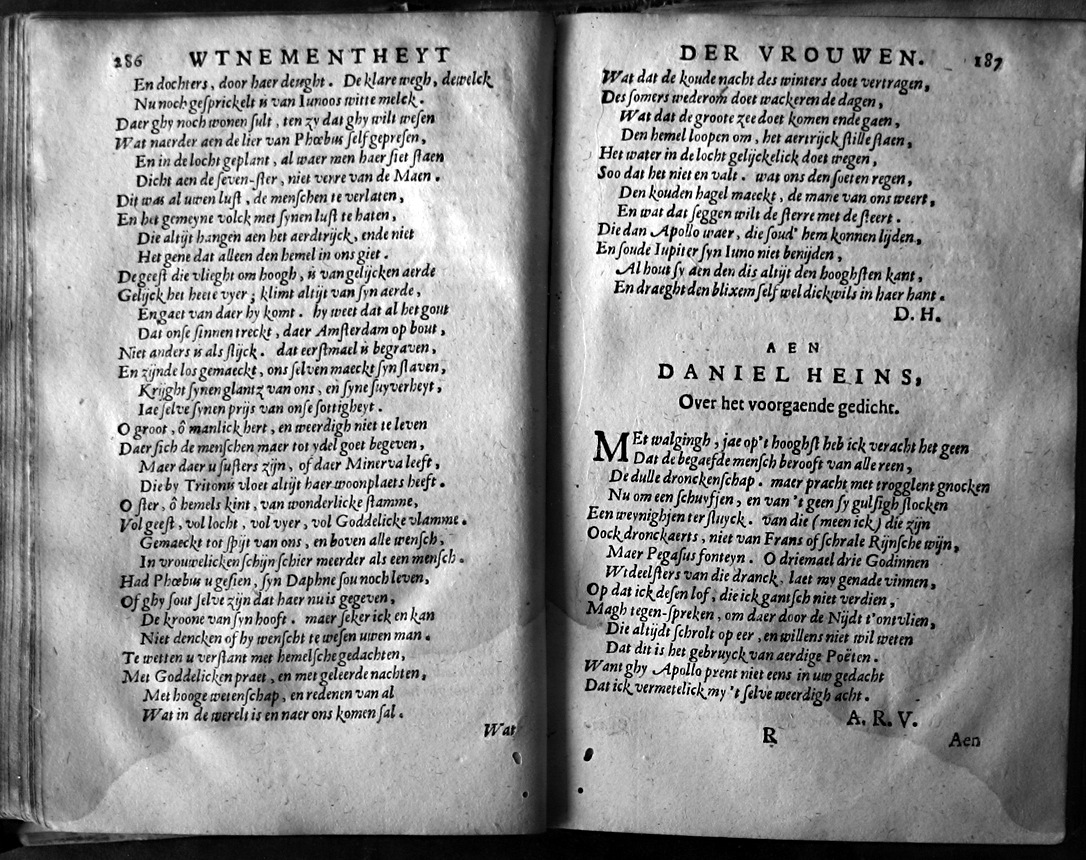 286 WTNEMENTHEYT
En dochters, door haer deught. De klare wegh, dewelck
Nu noch gesprickelt is van Iunoos witte melck.
Daer ghy noch wonen sult, ten zy dat ghy wilt wesen
Wat naerder aen de lier van Phœbus self gepresen,
En in de locht geplant, al waer men haer siet staen
Dicht aen de seven-ster, niet verre van de Maen.
Dit was al uwen lust, de menschen te verlaten,
En het gemeyne volck met synen lust te haten,
Die altijt hangen aen het aerdtrijck, ende niet
Het gene dat alleen den hemel in ons giet.
De geest die vlieght om hoogh, is van gelijcken aerde
Gelijck het heete vyer; klimt altijt van syn aerde,
En gaet van daer hy komt. hy weet dat al het gout
Dat onse sinnen treckt, daer Amsterdam op bout,
Niet anders is als slijck. dat eerstmael is begraven,
En zijnde los gemaeckt, ons selven maeckt syn slaven,
Krijght synen glantz van ons, en syne suyverheyt,
Iae selve synen prijs van onse sottigheyt.
O groot, ô manlick hert, en weerdigh niet te leven
Daer sich de menschen maer tot ydel goet begeven,
Maer daer u susters zijn, of daer Minerva leeft,
Die by Tritonis vloet altijt haer woonplaets heeft.
O ster, ô hemels kint, van wonderlicke stamme,
Vol geest, vol locht, vol vyer, vol Goddelicke vlamme.
Gemaeckt tot spijt van ons, en boven alle wensch,
In vrouwelicken schijn schier meerder als een mensch.
Had Phœbus u gesien, syn Daphne sou noch leven,
Of ghy sout selve zijn dat haer nu is gegeven,
De kroone van syn hooft. maer seker ick en kan
Niet dencken of hy wenscht te wesen uwen man.
Te wetten u verstant met hemelsche gedachten,
Met Goddelicken praet, en met geleerde nachten,
Met hooge wetenschap, en redenen van al
Wat in de werelt is en naer ons komen sal.
Wat
DER VROUWEN. 187
Wat dat de koude nacht des winters doet vertragen,
Des somers wederom doet wackeren de dagen,
Wat dat de groote zee doet komen ende gaen,
Den hemel loopen om, het aertrijck stille staen,
Het water in de locht gelijckelick doet wegen,
Soo dat het niet en valt. wat ons den soeten regen,
Den kouden hagel maeckt, de mane van ons weert,
En wat dat seggen wilt de sterre met de steert.
Die dan Apollo waer, die soud' hem konnen lijden,
En soude Iupiter syn Iuno niet benijden,
Al hout sy aen den dis altijt den hooghsten kant,
En draeght den blixem self wel dickwils in haer hant.
D. H.
AEN
DANIEL HEINS,
Over het voorgaende gedicht.
MEt walgingh, jae op't hooghst heb ick veracht het geen
Dat de begaefde mensch berooft van alle reen,
De dulle dronckenschap. maer pracht met trogglent gnocken
Nu om een schuyfjen, en van 't geen sy gulsigh slocken
Een weynighjen ter sluyck. van die (meen ick) die zijn
Oock dronckaerts, niet van Frans of schrale Rijnsche wijn,
Maer Pegasus fonteyn. O driemael drie Godinnen
Wtdeelsters van die dranck, laet my genade vinnen,
Op dat ick desen lof, die ick gantsch niet verdien,
Magh tegen-spreken, om daer door de Nijdt t'ontvlien,
Die altijdt schrolt op eer, en willens niet wil weten
Dat dit is het gebruyck van aerdige Poëten.
Want ghy Apollo prent niet eens in uw gedacht
Dat ick vermetelick my 't selve weerdigh acht.
A. R. V.
R Aen